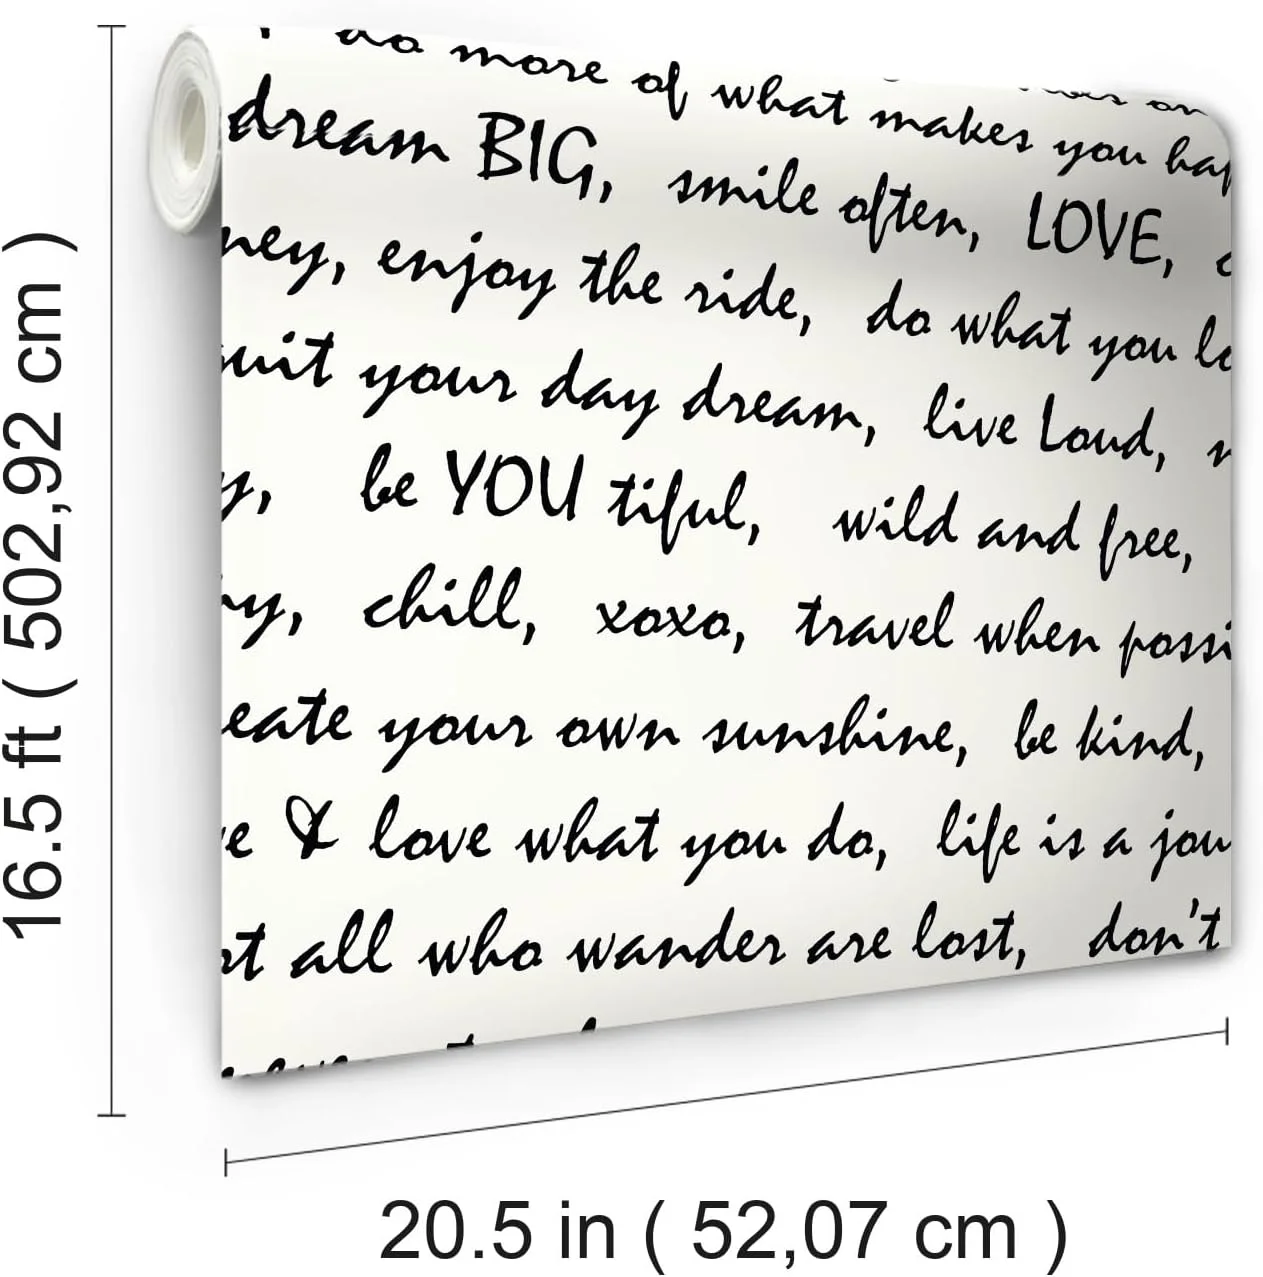 do more of what makes you hap
dream BIG, smile often, LOVE,
ney, enjoy the ride, do what you lo
uit your day dream, live Loud,
y, be YOU tiful, wild and free,
y, chill, xoxo, travel when possi
eate your own sunshine, be kind,
e & love what you do, life is a jou
ot all who wander are lost, don't
16.5 ft ( 502,92 cm )
20.5 in ( 52,07 cm )